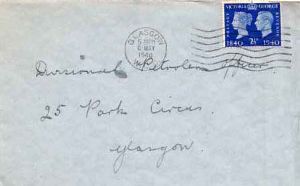 GLASGOW
6 MAY
1940
VICTORIA GEORGE
1840 2½ 1940
Divisional Petroleum Officer
25 Park Circus,
Glasgow.